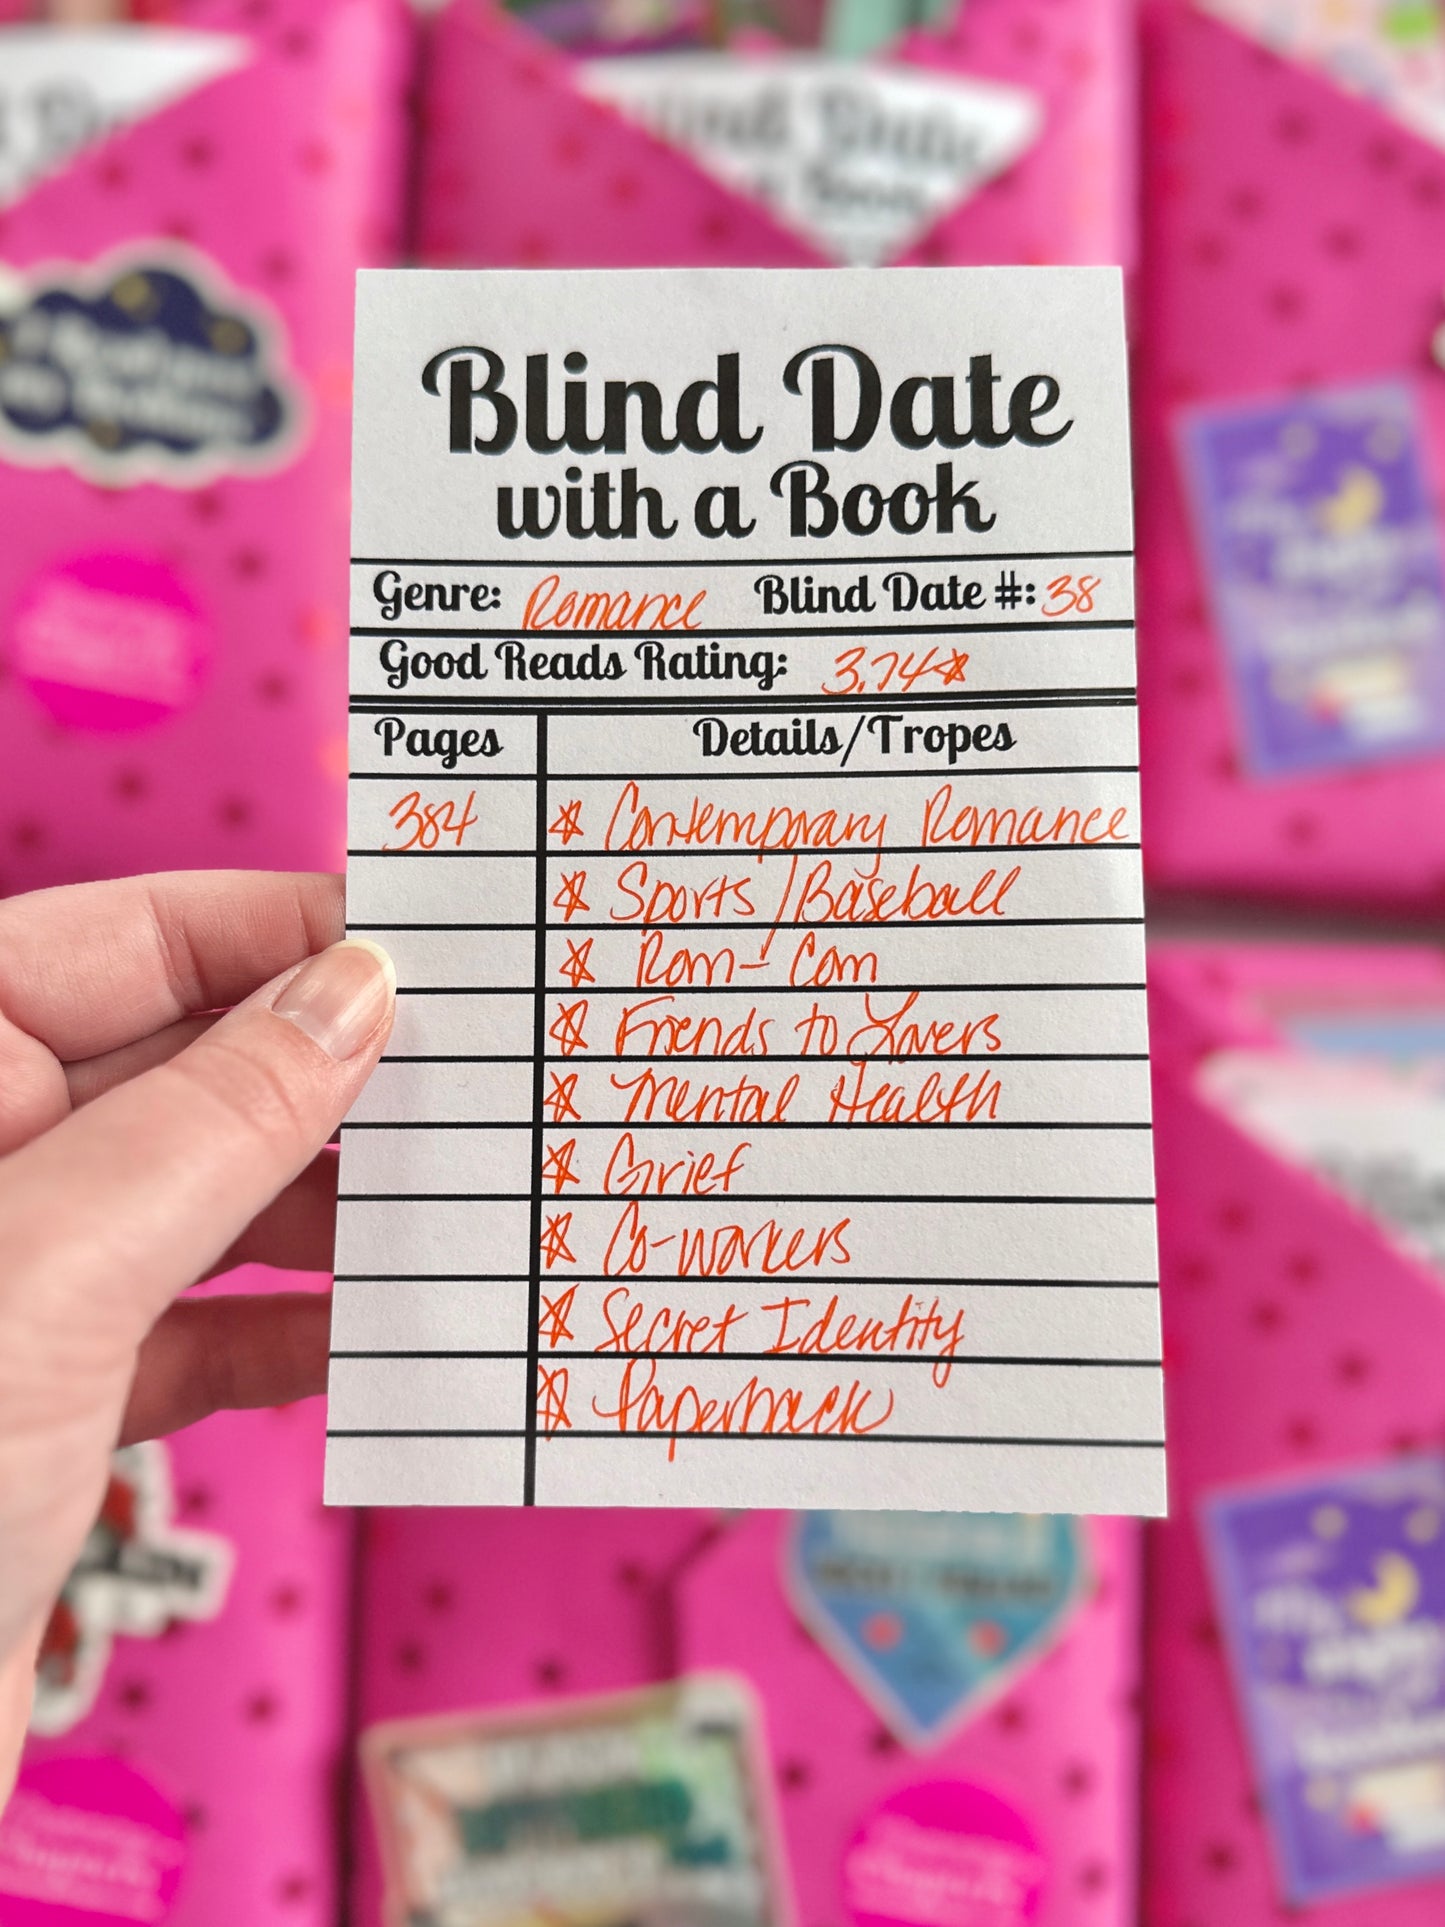 Blind Date
with a Book
Genre: Romance Blind Date #: 38
Good Reads Rating: 3.74☆
Pages Details/Tropes
384 ☆ Contemporary Romance
☆ Sports/Baseball
☆ Rom-Com
☆ Friends to Lovers
☆ Mental Health
☆ Grief
☆ Co-workers
☆ Secret Identity
☆ Paperback
Blind Date